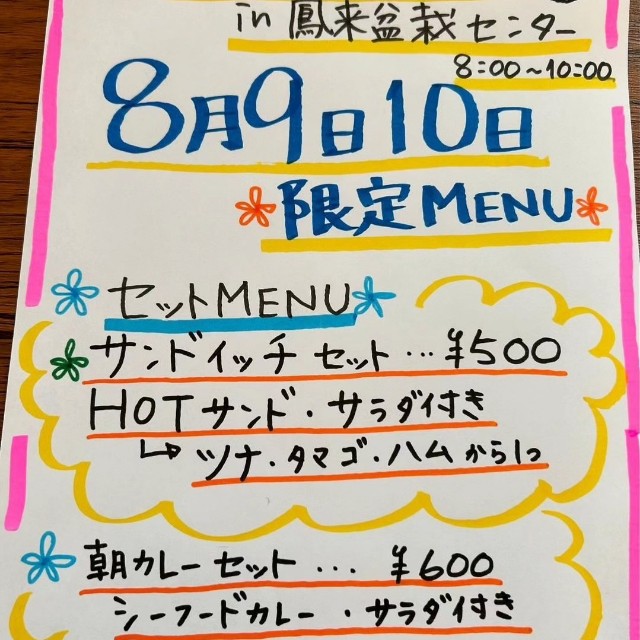 in 鳳来盆栽センター
8:00~10:00
8月9日10日
限定MENU
セットMENU
サンドイッチセット…¥500
HOTサンド・サラダ付き
↳ツナ・タマゴ・ハムから1つ
朝カレーセット…¥600
シーフードカレー・サラダ付き